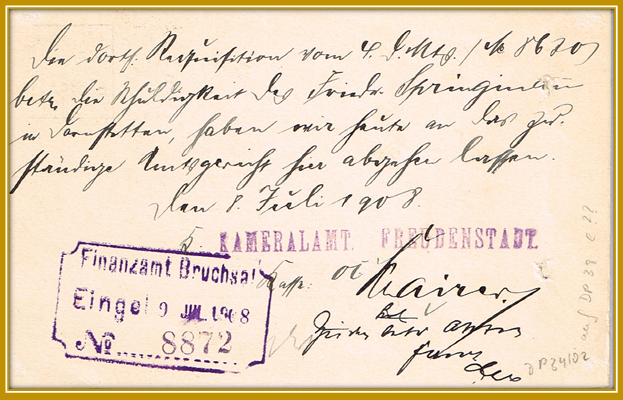 Die dorts. Requisition vom 4. d. Mts. (No 8620)
betr. die Schuldigkeit des Friedr. Springmann
in Dornstetten, haben wir heute an das zu-
ständige Amtsgericht hier abgehen lassen.
Den 8. Juli 1908.
K. KAMERALAMT. FREUDENSTADT.
Kasse:
Finanzamt Bruchsal
Eingel 9 JUL. 1908
No. 8872
auf DP 39
DP 24/02